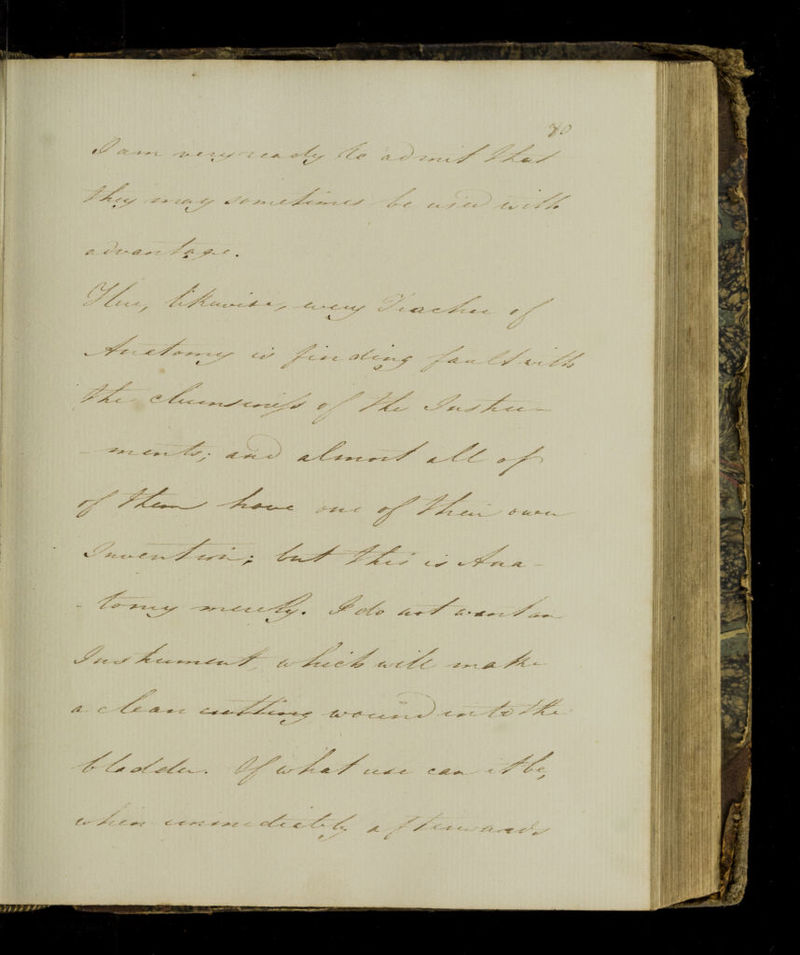 80
I am very ready to admit that
they may sometimes be used with
advantage.
Thus, likewise, every Teacher of
Anatomy is finding fault with
the clumsiness of the Instru-
-ments; and almost all of
of them have one of their own
Invention; but this is Ana-
-tomy merely. I do not want an
Instrument, which will make
a clean cutting wound into the
bladder. Of what use can it be,
when immediately afterwards